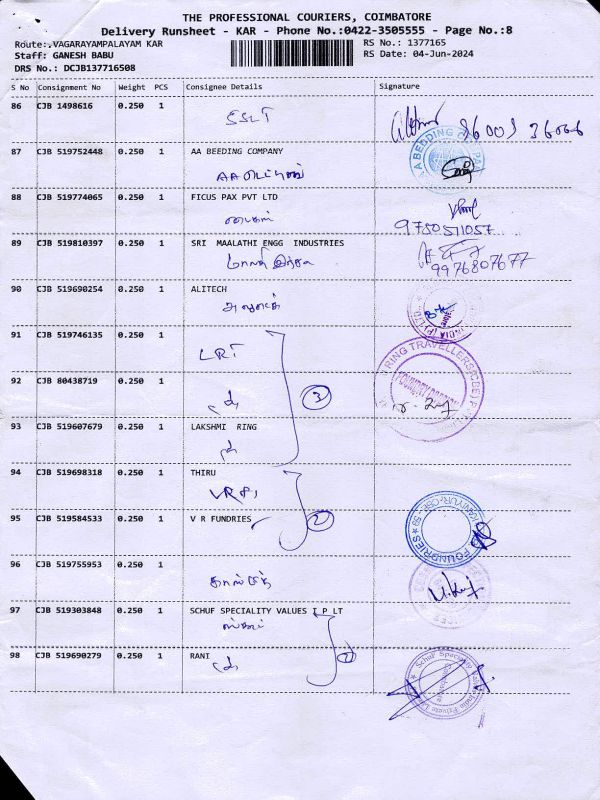 THE PROFESSIONAL COURIERS, COIMBATORE
Delivery Runsheet - KAR - Phone No.:0422-3505555 - Page No.:8
Route:.VAGARAYAMPALAYAM KAR
RS No.: 1377165
Staff: GANESH BABU
RS Date: 04-Jun-2024
DRS No.: DCJB137716508
S No Consignment No Weight PCS Consignee Details Signature
86 CJB 1498616 0.250 1
87 CJB 519752448 0.250 1 AA BEEDING COMPANY
A BEDDING COMPA
88 CJB 519774065 0.250 1 FICUS PAX PVT LTD
9750571057
89 CJB 519810397 0.250 1 SRI MAALATHI ENGG INDUSTRIES
9976807677
90 CJB 519690254 0.250 1 ALITECH
INDIA (P) LTD
91 CJB 519746135 0.250 1
LRT
RING TRAVELLERS(CBE)
FOUNDRY DIVISION
92 CJB 80438719 0.250 1
3
93 CJB 519607679 0.250 1 LAKSHMI RING
94 CJB 519698318 0.250 1 THIRU
95 CJB 519584533 0.250 1 V R FUNDRIES
2
FOUNDRIES
96 CJB 519755953 0.250 1
97 CJB 519303848 0.250 1 SCHUF SPECIALITY VALUES I P LT
98 CJB 519690279 0.250 1 RANI
2
Schuf Speciality India Private